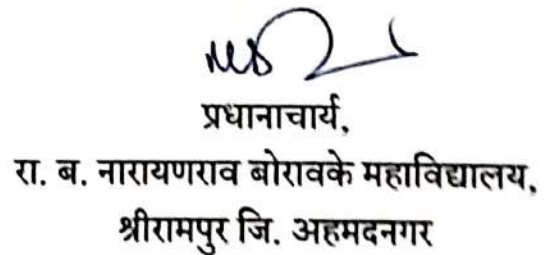 प्रधानाचार्य,
रा. ब. नारायणराव बोरावके महाविद्यालय,
श्रीरामपुर जि. अहमदनगर